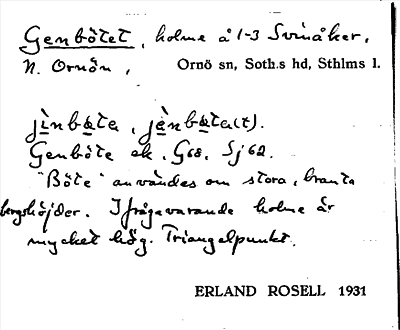 Genbötet, holme å 1-3 Svinåker,
N. Ornön, Ornö sn, Soth.s hd, Sthlms l.
jìnbøta, jènbøta(t).
Genböte ek. G68, Sj 62.
"Böte" användes om stora, branta
bergshöjder. Ifrågavarande holme är
mycket hög. Triangelpunkt.
ERLAND ROSELL 1931